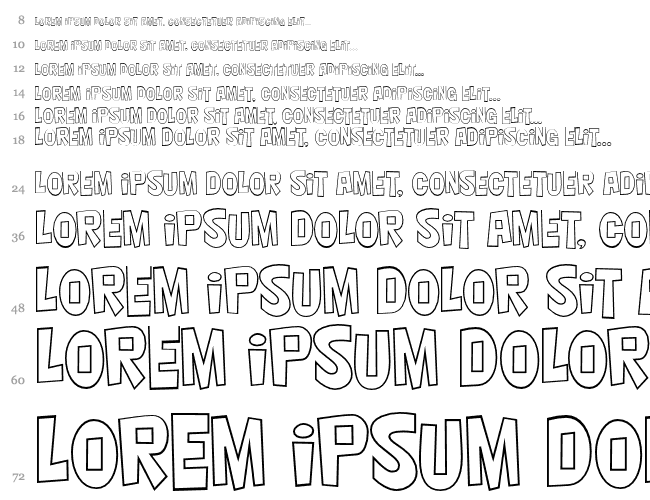 8 LOREM iPSUM DOLOR SiT AMET, CONSECTETUER ADiPiSCiNG ELiT...
10 LOREM iPSUM DOLOR SiT AMET, CONSECTETUER ADiPiSCiNG ELiT...
12 LOREM iPSUM DOLOR SiT AMET, CONSECTETUER ADiPiSCiNG ELiT...
14 LOREM iPSUM DOLOR SiT AMET, CONSECTETUER ADiPiSCiNG ELiT...
16 LOREM iPSUM DOLOR SiT AMET, CONSECTETUER ADiPiSCiNG ELiT...
18 LOREM iPSUM DOLOR SiT AMET, CONSECTETUER ADiPiSCiNG ELiT...
24 LOREM iPSUM DOLOR SiT AMET, CONSECTETUER ADi
36 LOREM iPSUM DOLOR SiT AMET, CO
48 LOREM iPSUM DOLOR SiT
60 LOREM iPSUM DOLOR
72 LOREM iPSUM DO